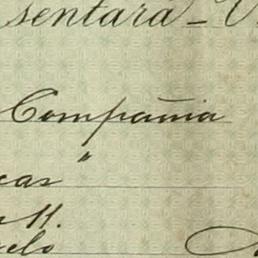 sentara - V
Compañia
"
cas
11.
elo